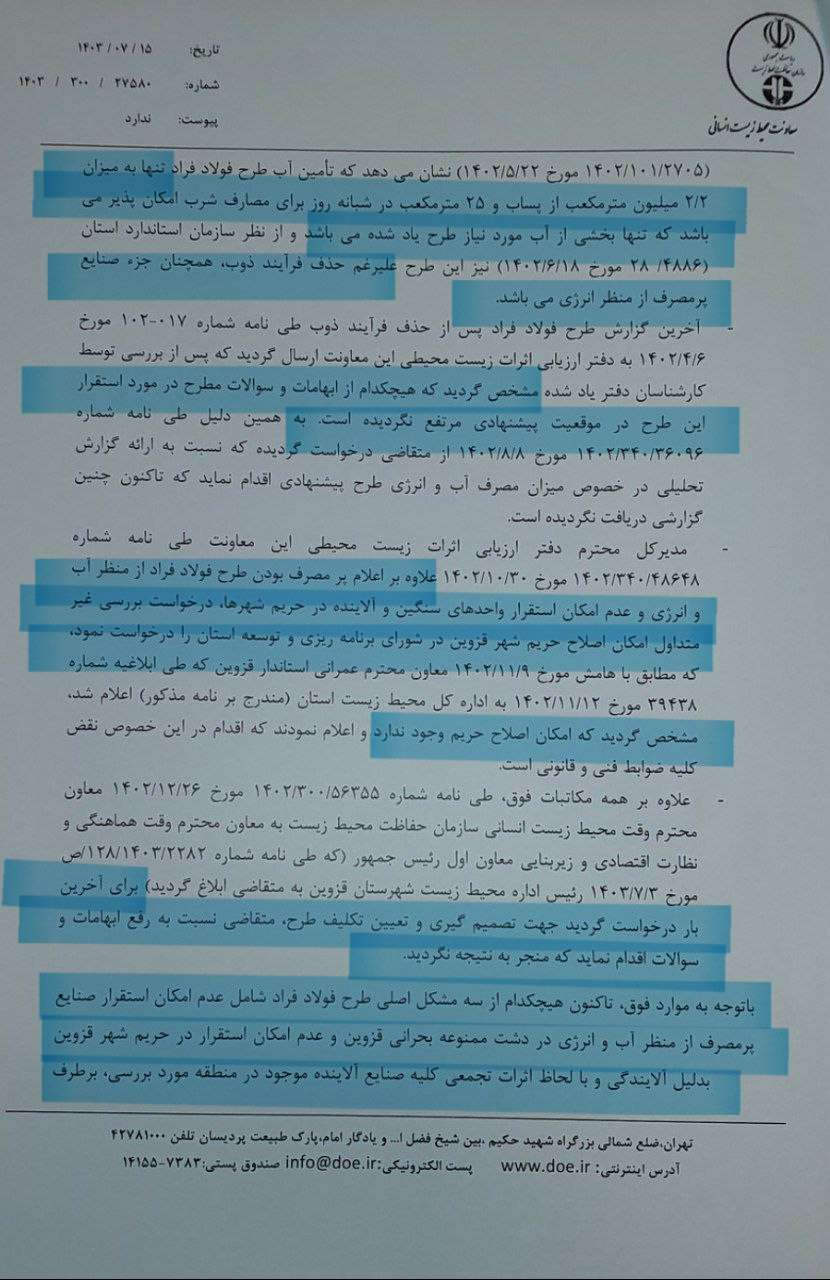 ریاست جمهوری
سازمان حفاظت محیط زیست
معاونت محیط زیست انسانی
تاریخ: ۱۴۰۳/۰۷/۱۵
شماره: ۱۴۰۳ / ۳۰۰ / ۲۷۵۸۰
پیوست: ندارد
(۱۴۰۲/۱۰۱/۲۷۰۵ مورخ ۱۴۰۲/۵/۲۲) نشان می دهد که تأمین آب طرح فولاد فراد تنها به میزان
۲/۲ میلیون مترمکعب از پساب و ۲۵ مترمکعب در شبانه روز برای مصارف شرب امکان پذیر می
باشد که تنها بخشی از آب مورد نیاز طرح یاد شده می باشد و از نظر سازمان استاندارد استان
(۲۸ /۴۸۸۶ مورخ ۱۴۰۲/۶/۱۸) نیز این طرح علیرغم حذف فرآیند ذوب، همچنان جزء صنایع
پرمصرف از منظر انرژی می باشد.
- آخرین گزارش طرح فولاد فراد پس از حذف فرآیند ذوب طی نامه شماره ۰۱۷-۱۰۲ مورخ
۱۴۰۲/۴/۶ به دفتر ارزیابی اثرات زیست محیطی این معاونت ارسال گردید که پس از بررسی توسط
کارشناسان دفتر یاد شده مشخص گردید که هیچکدام از ابهامات و سوالات مطرح در مورد استقرار
این طرح در موقعیت پیشنهادی مرتفع نگردیده است. به همین دلیل طی نامه شماره
۱۴۰۲/۳۴۰/۳۶۰۹۶ مورخ ۱۴۰۲/۸/۸ از متقاضی درخواست گردیده که نسبت به ارائه گزارش
تحلیلی در خصوص میزان مصرف آب و انرژی طرح پیشنهادی اقدام نماید که تاکنون چنین
گزارشی دریافت نگردیده است.
- مدیرکل محترم دفتر ارزیابی اثرات زیست محیطی این معاونت طی نامه شماره
۱۴۰۲/۳۴۰/۴۸۶۴۸ مورخ ۱۴۰۲/۱۰/۳۰ علاوه بر اعلام پر مصرف بودن طرح فولاد فراد از منظر آب
و انرژی و عدم امکان استقرار واحدهای سنگین و آلاینده در حریم شهرها، درخواست بررسی غیر
متداول امکان اصلاح حریم شهر قزوین در شورای برنامه ریزی و توسعه استان را درخواست نمود،
که مطابق با هامش مورخ ۱۴۰۲/۱۱/۹ معاون محترم عمرانی استاندار قزوین که طی ابلاغیه شماره
۳۹۴۳۸ مورخ ۱۴۰۲/۱۱/۱۲ به اداره کل محیط زیست استان (مندرج بر نامه مذکور) اعلام شد،
مشخص گردید که امکان اصلاح حریم وجود ندارد و اعلام نمودند که اقدام در این خصوص نقض
کلیه ضوابط فنی و قانونی است.
- علاوه بر همه مکاتبات فوق، طی نامه شماره ۱۴۰۲/۳۰۰/۵۶۳۵۵ مورخ ۱۴۰۲/۱۲/۲۶ معاون
محترم وقت محیط زیست انسانی سازمان حفاظت محیط زیست به معاون محترم وقت هماهنگی و
نظارت اقتصادی و زیربنایی معاون اول رئیس جمهور (که طی نامه شماره ۱۲۸/۱۴۰۳/۲۲۸۲/ص
مورخ ۱۴۰۳/۷/۳ رئیس اداره محیط زیست شهرستان قزوین به متقاضی ابلاغ گردید) برای آخرین
بار درخواست گردید جهت تصمیم گیری و تعیین تکلیف طرح، متقاضی نسبت به رفع ابهامات و
سوالات اقدام نماید که منجر به نتیجه نگردید.
باتوجه به موارد فوق، تاکنون هیچکدام از سه مشکل اصلی طرح فولاد فراد شامل عدم امکان استقرار صنایع
پرمصرف از منظر آب و انرژی در دشت ممنوعه بحرانی قزوین و عدم امکان استقرار در حریم شهر قزوین
بدلیل آلایندگی و با لحاظ اثرات تجمعی کلیه صنایع آلاینده موجود در منطقه مورد بررسی، برطرف
تهران،ضلع شمالی بزرگراه شهید حکیم ،بین شیخ فضل ا... و یادگار امام،پارک طبیعت پردیسان تلفن ۴۲۷۸۱۰۰۰
آدرس اینترنتی: www.doe.ir پست الکترونیکی:info@doe.ir صندوق پستی:۷۳۸۳-۱۴۱۵۵